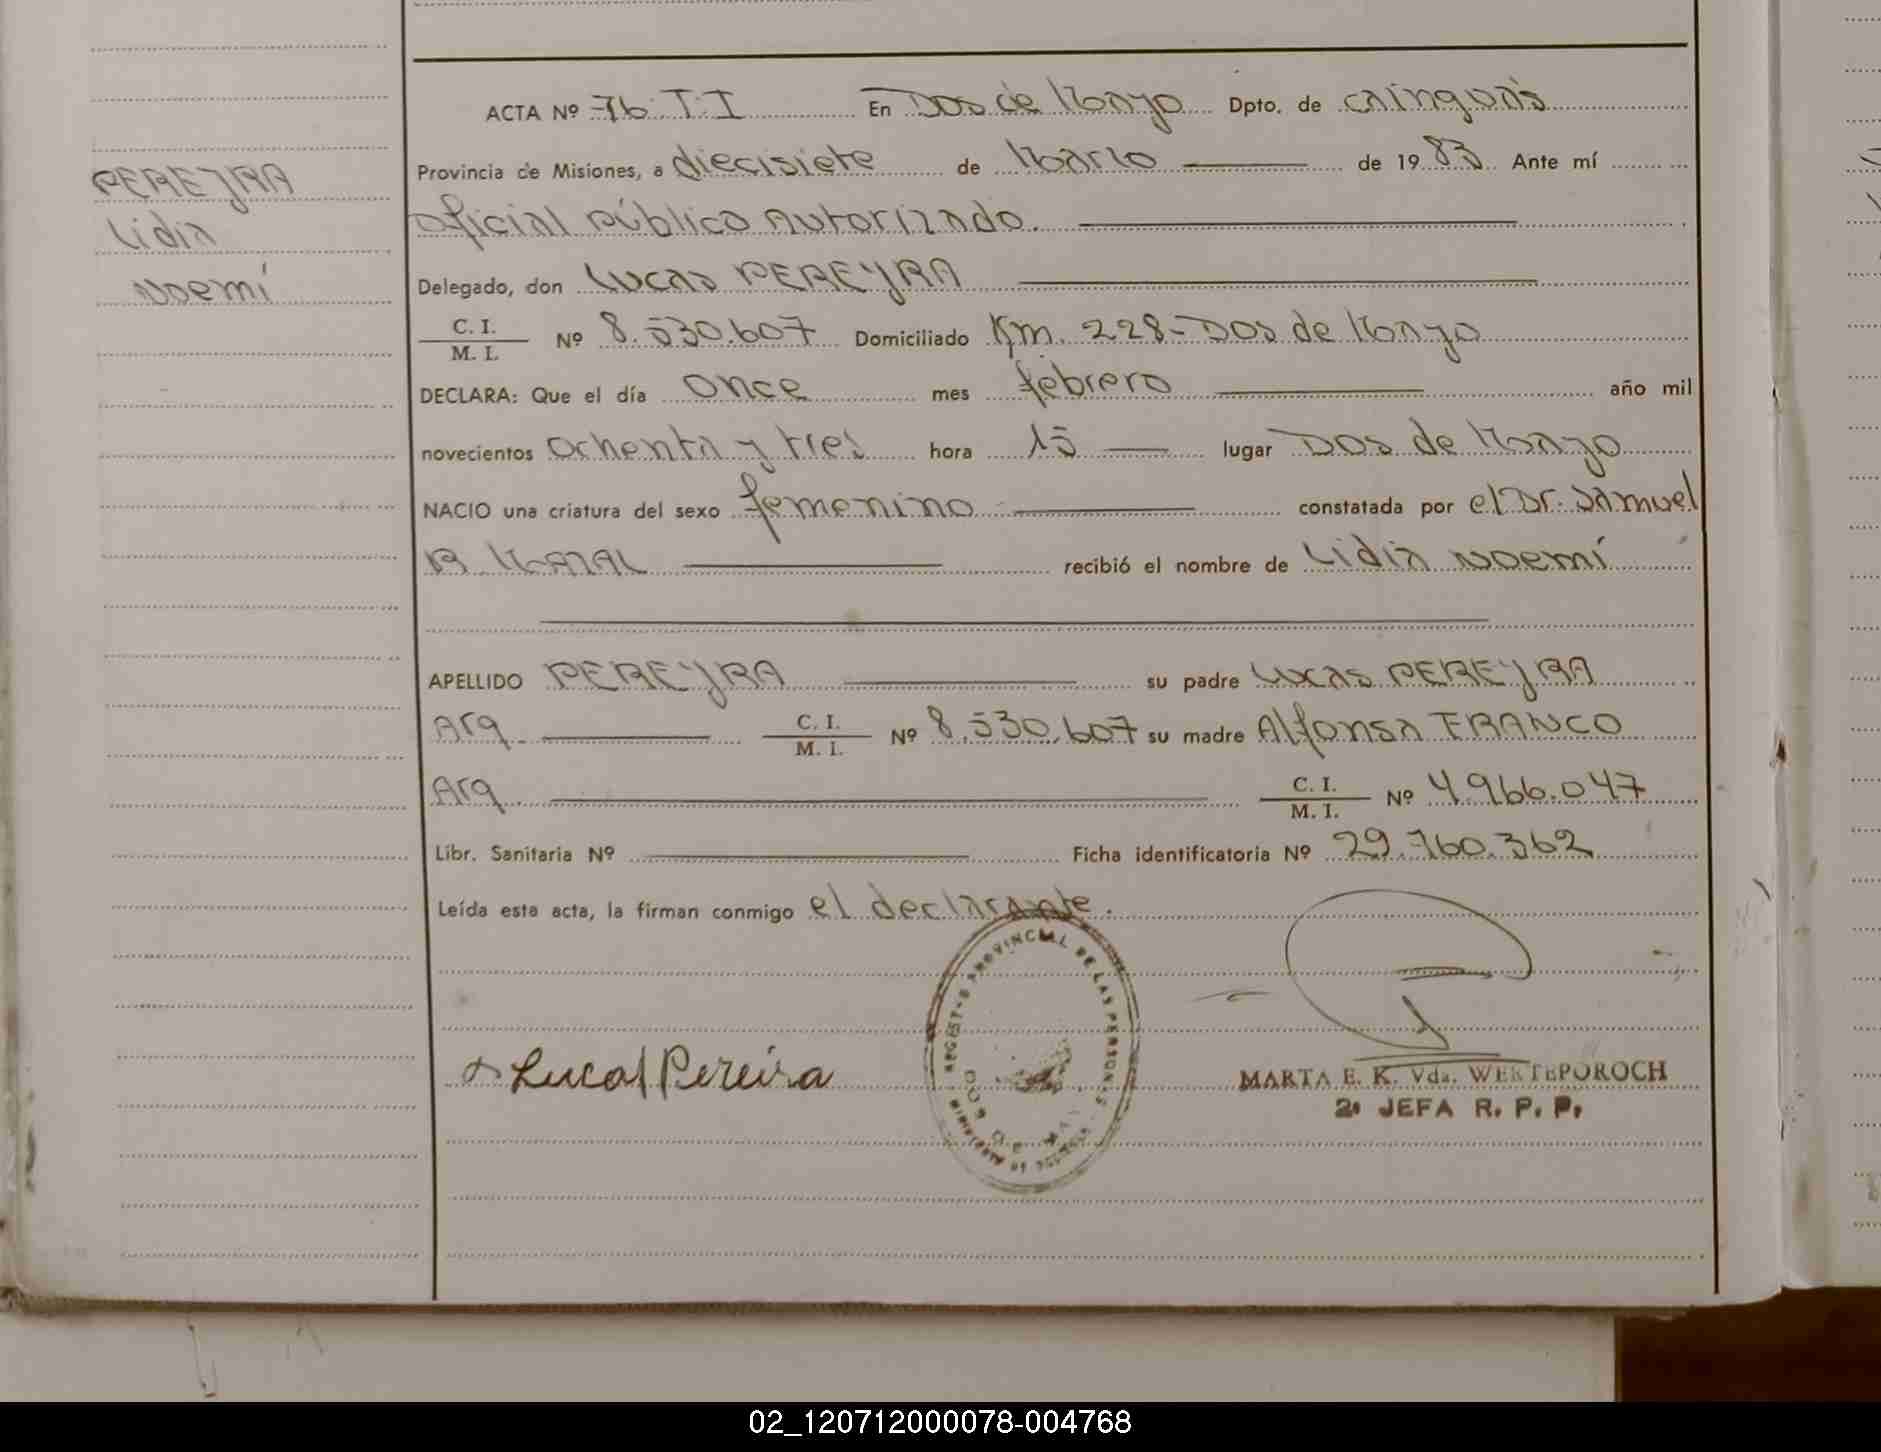 PEREYRA
Lidia
Noemí
ACTA Nº 76. T. I En Dos de Mayo Dpto. de Cainguás
Provincia de Misiones, a diecisiete de Marzo de 1983 Ante mí
Oficial Público Autorizado.
Delegado, don Lucas PEREYRA
C. I.
M. I. Nº 8.530.607 Domiciliado Km. 228-Dos de Mayo
DECLARA: Que el día once mes febrero año mil
novecientos ochenta y tres hora 15 lugar Dos de Mayo
NACIO una criatura del sexo femenino constatada por el Dr. Samuel
recibió el nombre de Lidia Noemí
APELLIDO PEREYRA su padre Lucas PEREYRA
Arg. C. I.
M. I. Nº 8.530.607 su madre Alfonsa FRANCO
Arg. C. I.
M. I. Nº 4.966.047
Libr. Sanitaria Nº Ficha identificatoria Nº 29.760.362
Leída esta acta, la firman conmigo el declarante.
PROVINCIAL DE LAS PERSONAS
Lucas Pereira
MARTA E. K. Vda. WERTEPOROCH
2ª JEFA R. P. P.
02_120712000078-004768